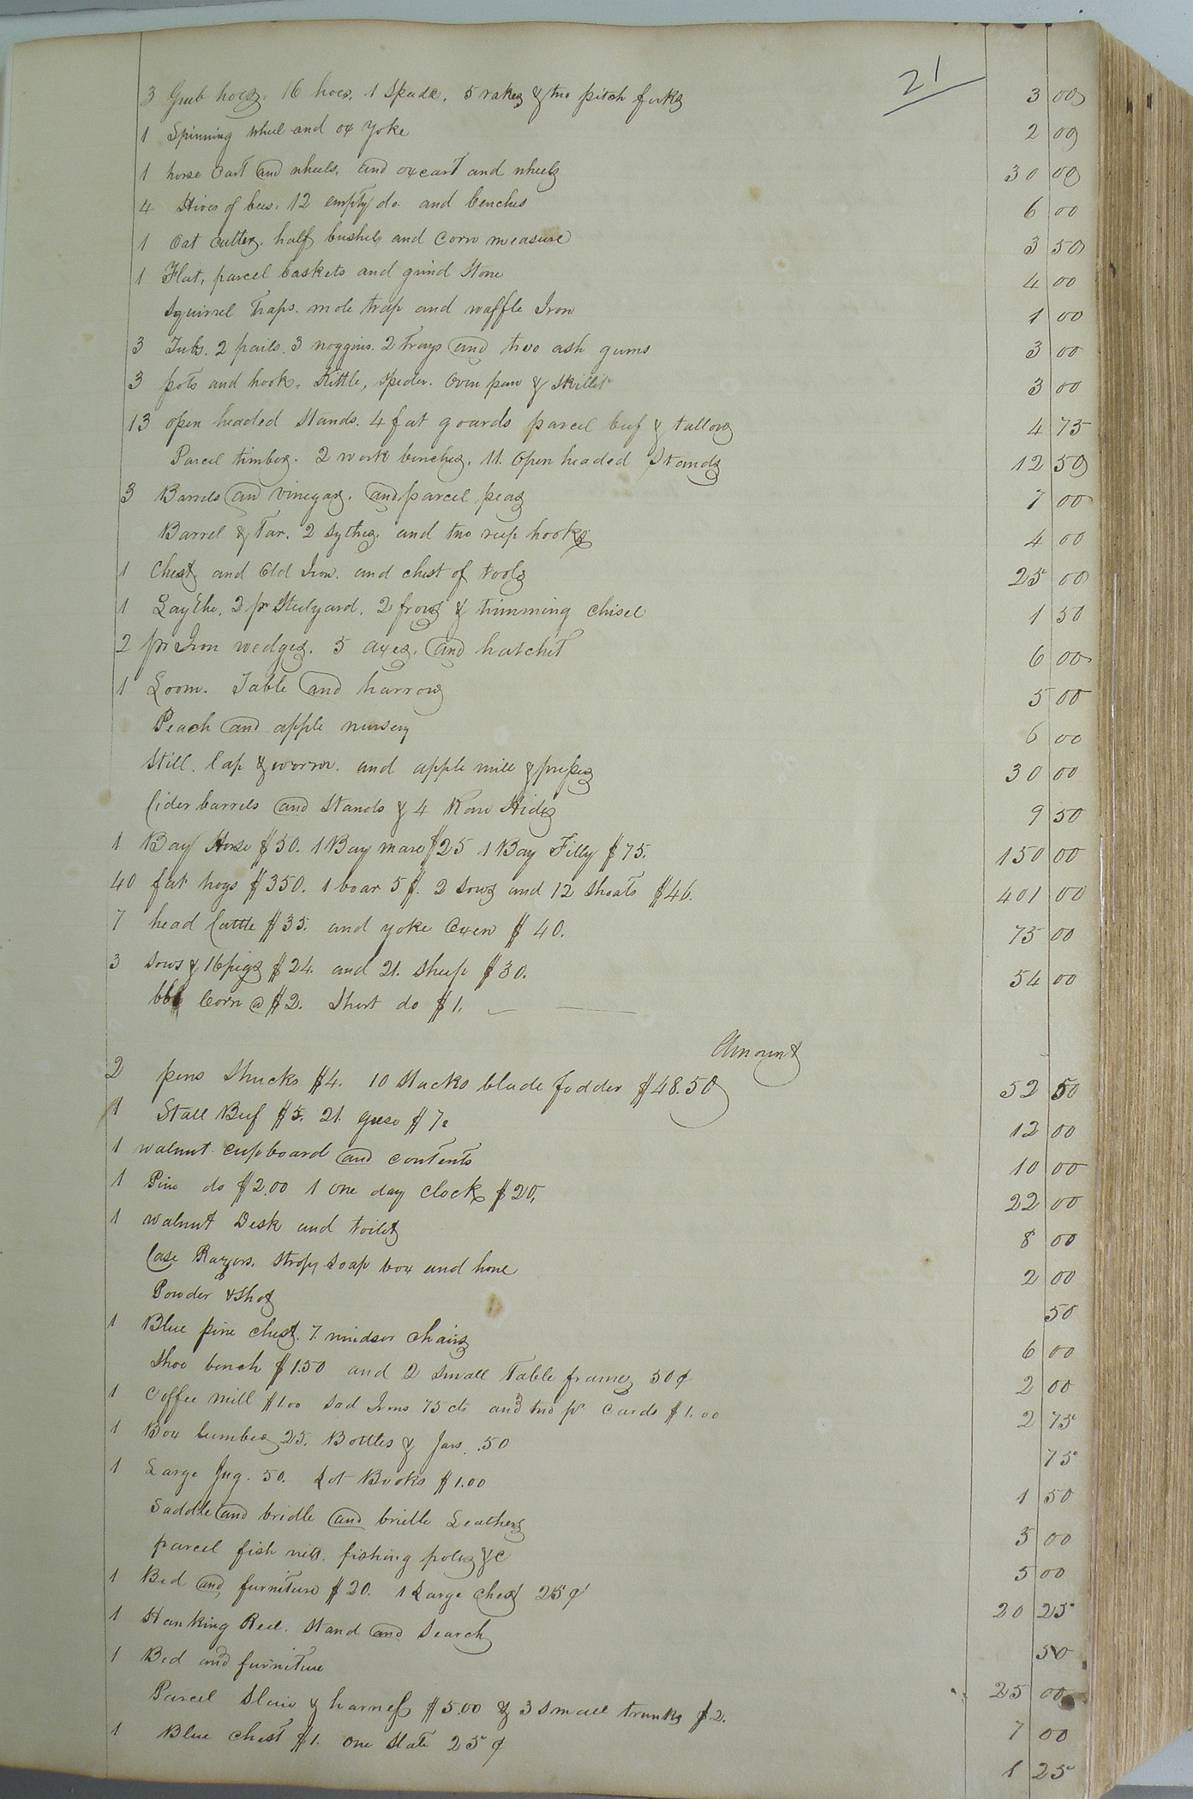 21
3 Grub hoes. 16 hoes. 1 Spade. 5 rakes & two pitch forks 3 00
1 Spinning wheel and ox yoke 2 00
1 horse Cart and wheels, and oxcart and wheels 30 00
4 Hives of bees. 12 empty do and benches 6 00
1 Oat cutter. half bushels and Corn measure 3 50
1 Flat, parcel baskets and grind Stone 4 00
Squirrel Traps. mole trap and waffle Iron 1 00
3 Tubs. 2 pails. 3 noggins. 2 Trays and two ash gums 3 00
3 pots and hook. Kittle, Spider. Oven pan & Skillet 3 00
13 open headed Stands. 4 fat goards parcel beef & tallow 4 75
Parcel timber. 2 work benches. 11. Open headed Stands 12 50
3 Barrels and vinegar. and parcel peas 7 00
Barrel & Tar. 2 Sythes. and two reep hooks 4 00
1 Chest and Old Iron. and chest of tools 25 00
1 Laythe. 2 pr Steelyard. 2 frows & trimming chisel 1 50
2 pr Iron wedges. 5 axes. and hatchet 6 00
1 Loom. Table and harrow 5 00
Peach and apple nursery 6 00
Still. Cap & worm. and apple mill & press 30 00
Cider barrels and Stands & 4 Raw Hides 9 50
1 Bay Horse $50. 1 Bay mare $25 1 Bay Filly $75. 150 00
40 fat hogs $350. 1 boar 5$. 2 Sows and 12 Shoats $46. 401 00
7 head Cattle $35. and yoke Oxen $40. 75 00
3 Sows & 16 pigs $24. and 21. Sheep $30. 54 00
bbl Corn @ $2. Short do $1.
Amount
2 pens Shucks $4. 10 Stacks blade fodder $48.50 52 50
1 Stall Beef $5. 21. geese $7. 12 00
1 walnut cupboard and contents 10 00
1 Pine do $2.00 1 one day clock $20. 22 00
1 walnut Desk and toilet 8 00
Case Razors. Strop, Soap box and hone 2 00
Powder & Shot 50
1 Blue pine chest. 7. windsor chairs 6 00
Shoe bench $1.50 and 2 Small Table frames 50¢ 2 00
1 Coffee mill $1.00 Sad Irons 75 cts and two pr Cards $1.00 2 75
1 Box lumber 25. Bottles & Jars. .50 75
1 Large Jug. 50. Lot Books $1.00 1 50
Saddle and bridle and Leather 5 00
parcel fish nets. fishing poles &C 5 00
1 Bed and furniture $20. 1 Large chest 25¢ 20 25
1 Hanking Reel. Stand and Search 50
1 Bed and furniture 25 00
Parcel Slaie & harness $5.00 & 3 Small trunks $2. 7 00
1 Blue chest $1. One Slate 25¢ 1 25